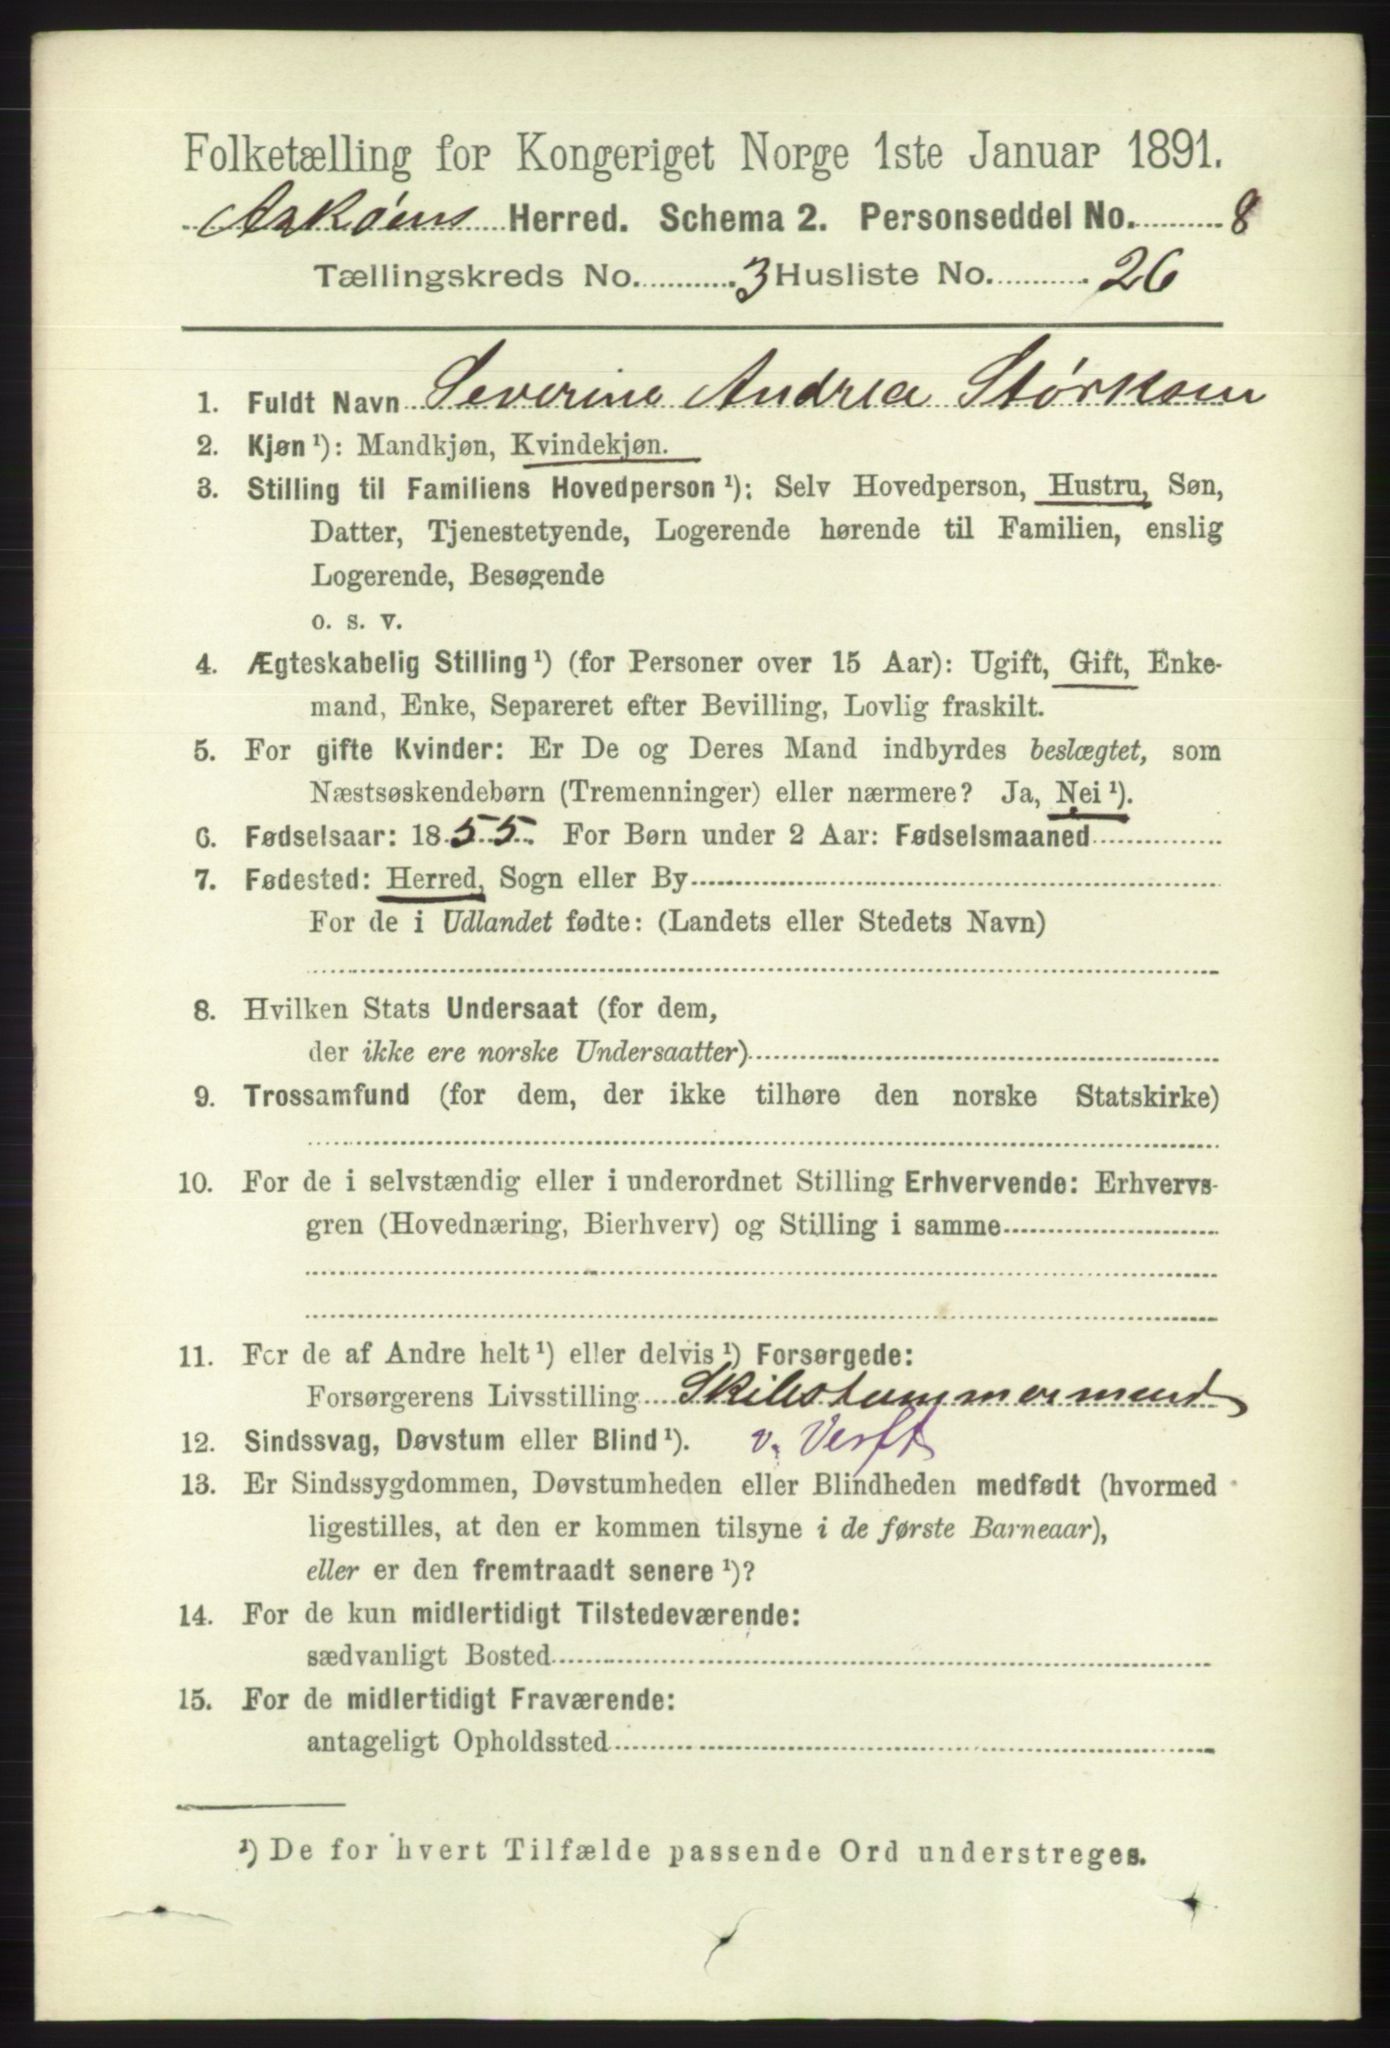 Folketælling for Kongeriget Norge 1ste Januar 1891.
Askøens Herred. Schema 2. Personseddel No. 8
Tællingskreds No. 3 Husliste No. 26
1. Fuldt Navn Severine Andrea Størksen
2. Kjøn ¹): Mandkjøn, Kvindekjøn.
3. Stilling til Familiens Hovedperson ¹): Selv Hovedperson, Hustru, Søn,
Datter, Tjenestetyende, Logerende hørende til Familien, enslig
Logerende, Besøgende
o. s. v.
4. Ægteskabelig Stilling ¹) (for Personer over 15 Aar): Ugift, Gift, Enke-
mand, Enke, Separeret efter Bevilling, Lovlig fraskilt.
5. For gifte Kvinder: Er De og Deres Mand indbyrdes beslægtet, som
Næstsøskendebørn (Tremenninger) eller nærmere? Ja, Nei ¹).
6. Fødselsaar: 1855. For Børn under 2 Aar: Fødselsmaaned
7. Fødested: Herred, Sogn eller By
For de i Udlandet fødte: (Landets eller Stedets Navn)
8. Hvilken Stats Undersaat (for dem,
der ikke ere norske Undersaatter)
9. Trossamfund (for dem, der ikke tilhøre den norske Statskirke)
10. For de i selvstændig eller i underordnet Stilling Erhvervende: Erhvervs-
gren (Hovednæring, Bierhverv) og Stilling i samme
11. For de af Andre helt ¹) eller delvis ¹) Forsørgede:
Forsørgerens Livsstilling Skibstømmermand
12. Sindssvag, Døvstum eller Blind ¹). v. Verft
13. Er Sindssygdommen, Døvstumheden eller Blindheden medfødt (hvormed
ligestilles, at den er kommen tilsyne i de første Barneaar),
eller er den fremtraadt senere ¹)?
14. For de kun midlertidigt Tilstedeværende:
sædvanligt Bosted
15. For de midlertidigt Fraværende:
antageligt Opholdssted
¹) De for hvert Tilfælde passende Ord understreges.